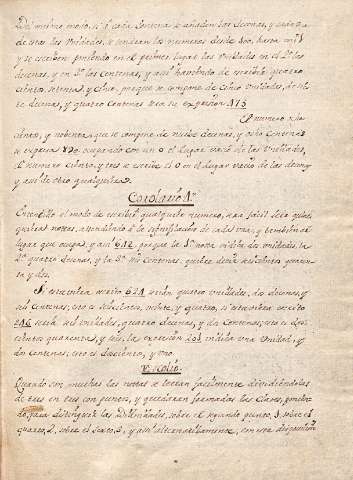 Del mismo modo, si á cada Centena se añaden las decenas, y á cada
de estas las Unidades, se tendran los numeros desde 100, hasta
y se escriben poniendo en el primer lugar las Unidades en el 2º las
decenas, y en 3º las Centenas, y asi habiendo de escribir quatro
ciento, setenta, y cinco, porque se compone de cinco Unidades, de
te decenas, y quatro Centenas sera su expresion 475
El numero ocho
ciento, y noventa, que se compone de nueve decenas, y ocho Centenas
se expresa 890 ocupando con un 0 el lugar vacio de las Unidades,
el numero ciento, y tres se escribe el 0 en el lugar vacio de las decenas
y asi de otro qualquiera.
Corolario 1º
Entendido el modo de escribir qualquier numero, sera facil leer quales
quieras notas, atendiendo á la significacion de cada una, y tambien al
lugar que ocupa, y asi 642 porque la 1ª nota indica dos unidades, la
2ª quatro decenas, y la 3ª seis Centenas, querra decir seiscientos quaren
ta y dos.
Si estuviera escrito 624 serán quatro unidades, dos decenas, y
seis Centenas; esto es seiscientos, veinte, y quatro, si estuviera escrito
246 será seis unidades, quatro decenas, y dos Centenas, esto es dos
cientos quarenta, y seis, la expresion 201 indica una Unidad, y
dos Centenas, esto es doscientos, y uno.
Escolio.
Quando son muchas las notas se leeran facilmente dividiendolas
de tres en tres con puntos, y quedaran formadas las Clases, ponien
do, para distinguir las sobre el segundo punto, 1 sobre el
quarto, 2 sobre el sexto, 3, y asi alternativamente, con esta disposicion